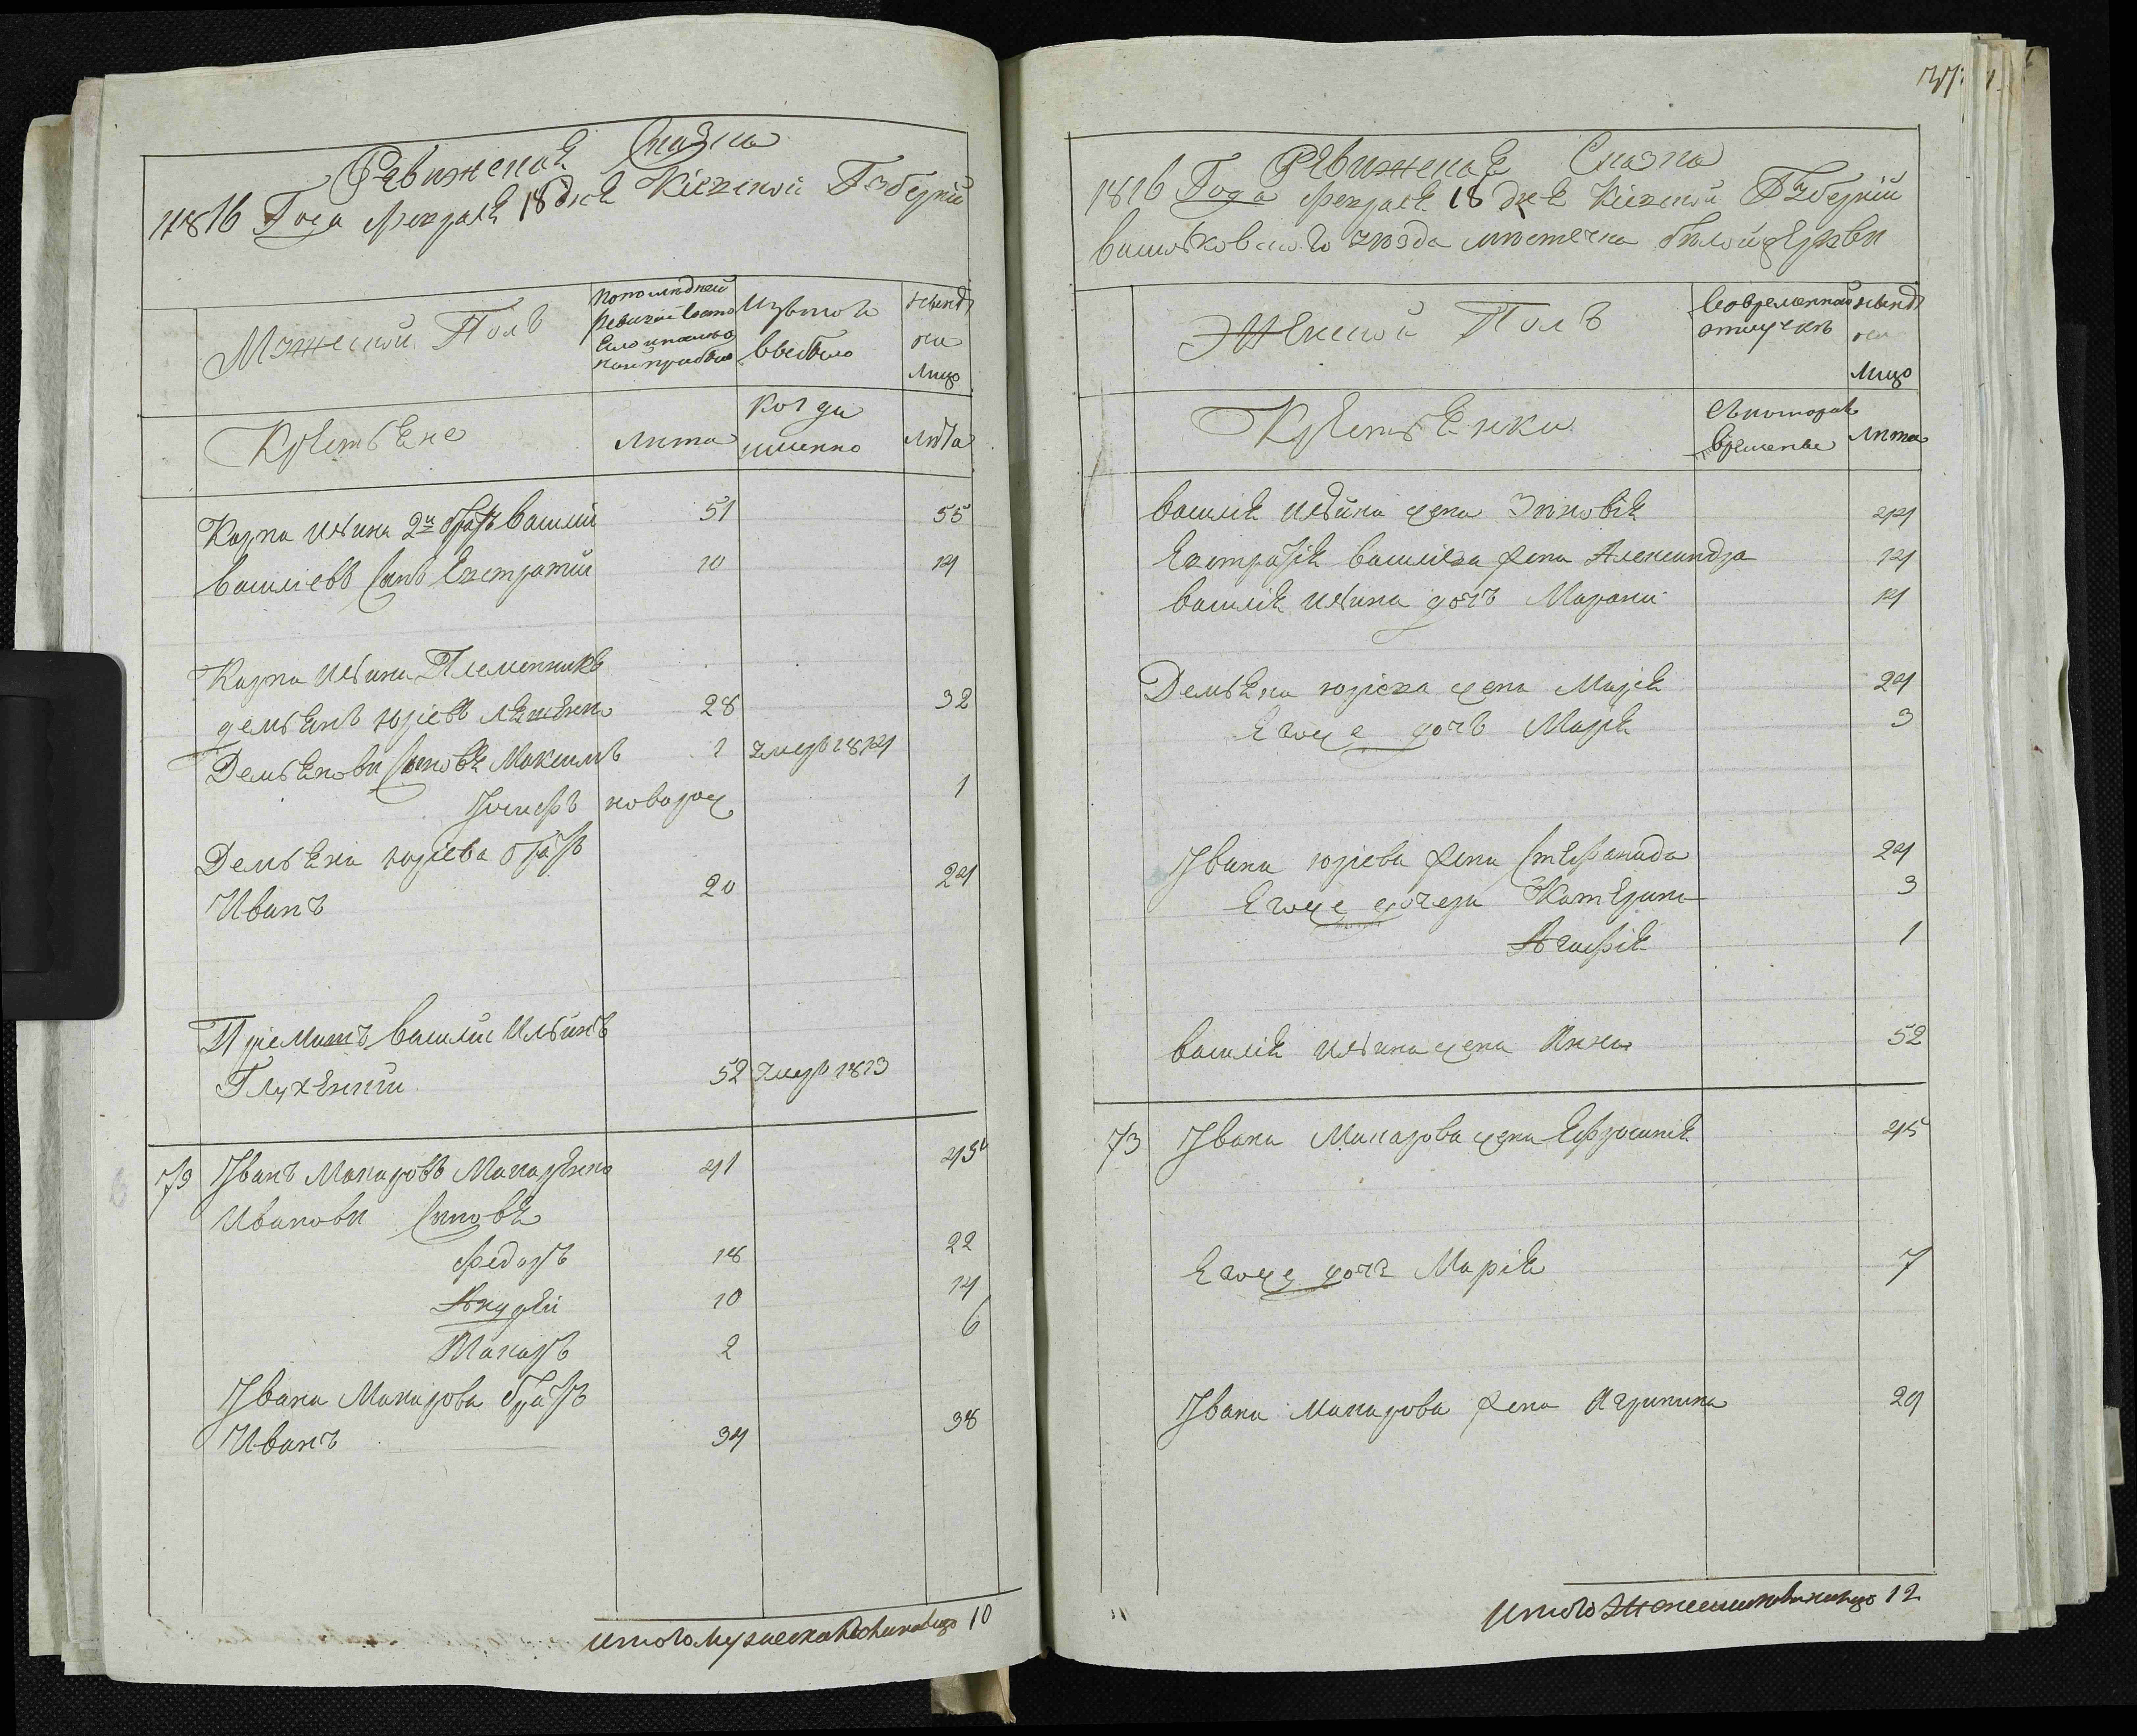 Ревижская Сказка
1816 Года Февраля 18 дня Кіевской Губерніи
Мужеской Полъ
Изтого
выбыло
нынѣ
на
лицо
Крестьяне
лѣта
Когда
именно
лѣта
Карпа Ильина 2й братъ василій 51 55
василіевъ сынъ Евстратій 10 14
Карпа Ильина Племенникъ
демьянъ юріевъ 28 32
Демьянови сыновья Максимъ 1 умеръ 1814
Іосифъ новорож 1
Демьяна юріева братъ
Иванъ 20 24
Пріемишъ василій Ильинъ
52 умеръ 1813
73 Іванъ Макаровъ Макаренко 41 45
Иванови сыновья
Федоръ 18 22
Андрей 10 14
Макаръ 2 6
Ивана Макарова братъ
Иванъ 34 38
Итого мужеска полу налицо 10
Ревижская Сказка
1816 Года Февраля 18 дня Кіевской Губерніи
васильковского уѣзда мѣстечка бѣлойцеркви
Женской Полъ
вовременной
отлучкѣ
нынѣ
на
лицо
Крестьянки
съкотораго
времени
лѣта
василія Ильина жена Зѣновія 44
Евстратія василіева жена Александра 14
василія Ильина дочь Марѳа 14
Демьяна юріева жена Марія 24
Егоже дочь Марія 3
Івана юріева жена Стефанида 24
Егоже дочери Катерина 3
Агафія 1
василія Ильина жена Анна 52
73 Івана Макарова жена Ефросинія 45
Егоже дочь Марія 7
Івана Макарова жена Агрипина 29
Итого женска налицо 12